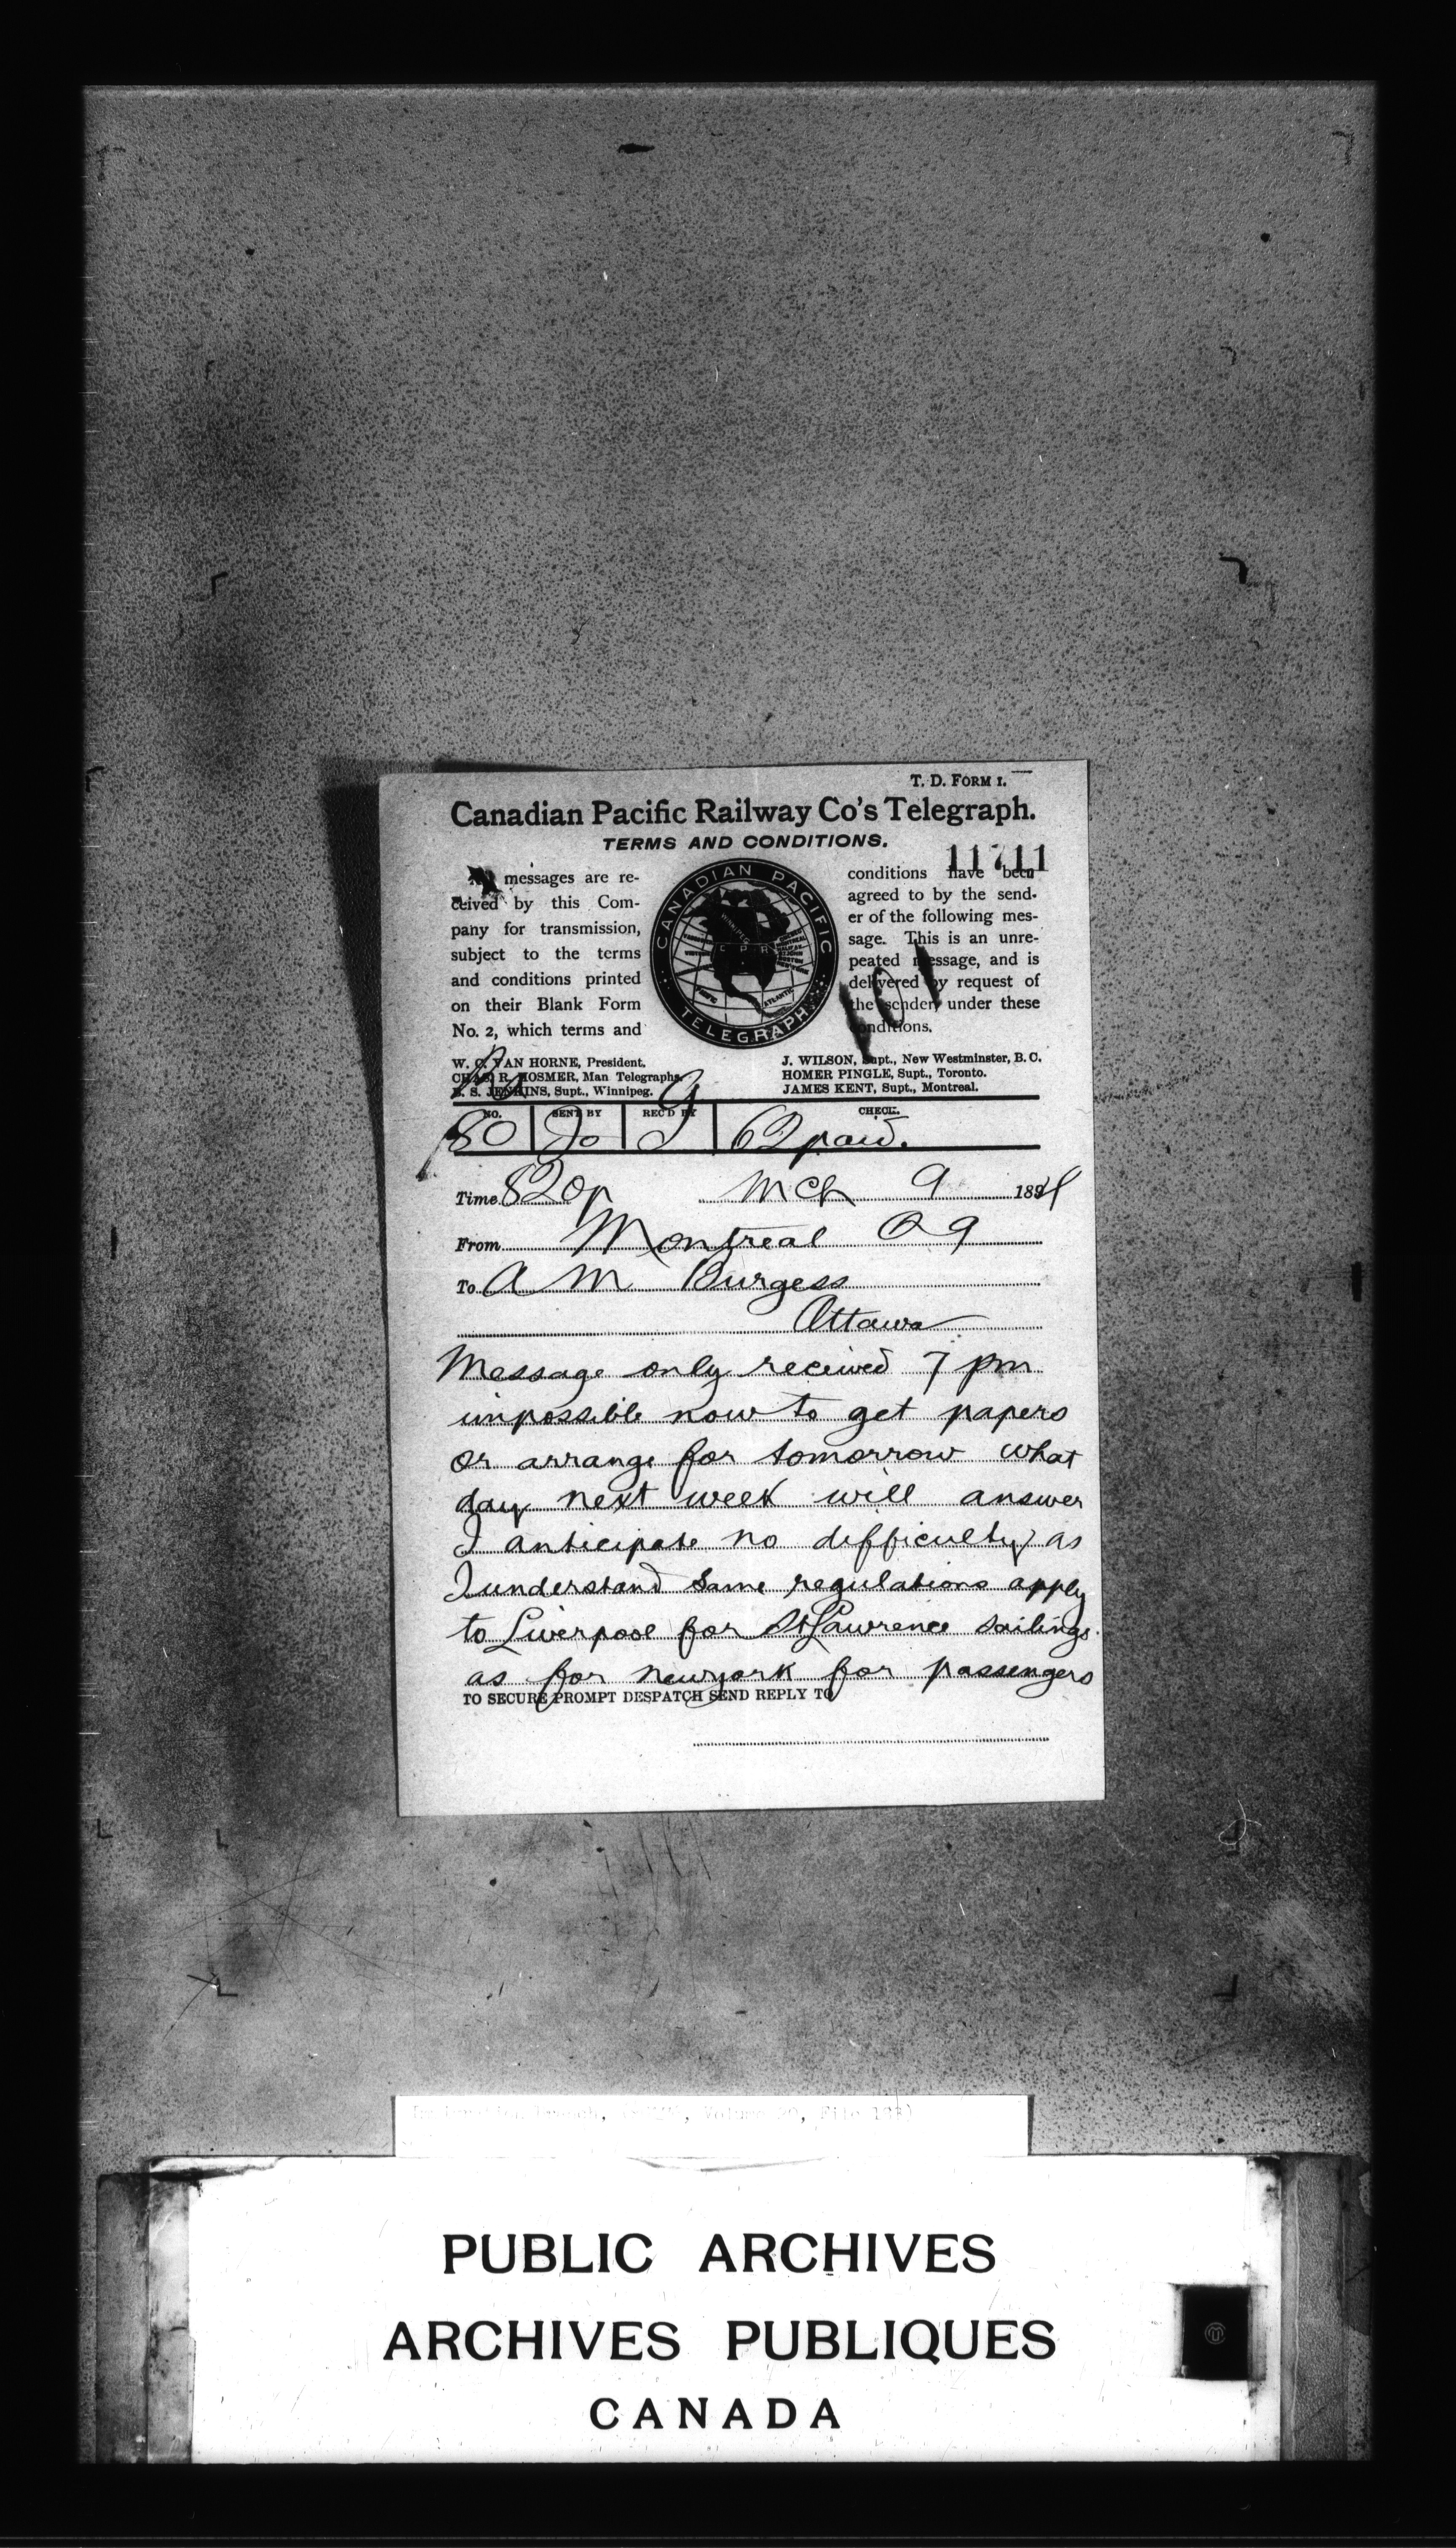 T. D. FORM 1.
Canadian Pacific Railway Co's Telegraph.
TERMS AND CONDITIONS.
11711
All messages are re-
ceived by this Com-
pany for transmission,
subject to the terms
and conditions printed
on their Blank Form
No. 2, which terms and
CANADIAN PACIFIC
C P R
TELEGRAPH
conditions have been
agreed to by the send-
er of the following mes-
sage. This is an unre-
peated message, and is
delivered by request of
the sender, under these
conditions.
101
W. C. VAN HORNE, President.
CHAS. R. HOSMER, Man Telegraphs.
B. S. JENKINS, Supt., Winnipeg.
J. WILSON, Supt., New Westminster, B. C.
HOMER PINGLE, Supt., Toronto.
JAMES KENT, Supt., Montreal.
NO. SENT BY REC'D BY CHECK.
80 62 paid.
Time 820p Mch 9 1894
From Montreal Q 9
To A M Burgess
Ottawa
Message only received 7 pm
impossible now to get papers
or arrange for tomorrow what
day next week will answer
I anticipate no difficulty as
I understand same regulations apply
to Liverpool for St Lawrence sailings
as for newyork for passengers
TO SECURE PROMPT DESPATCH SEND REPLY TO
PUBLIC ARCHIVES
ARCHIVES PUBLIQUES
CANADA